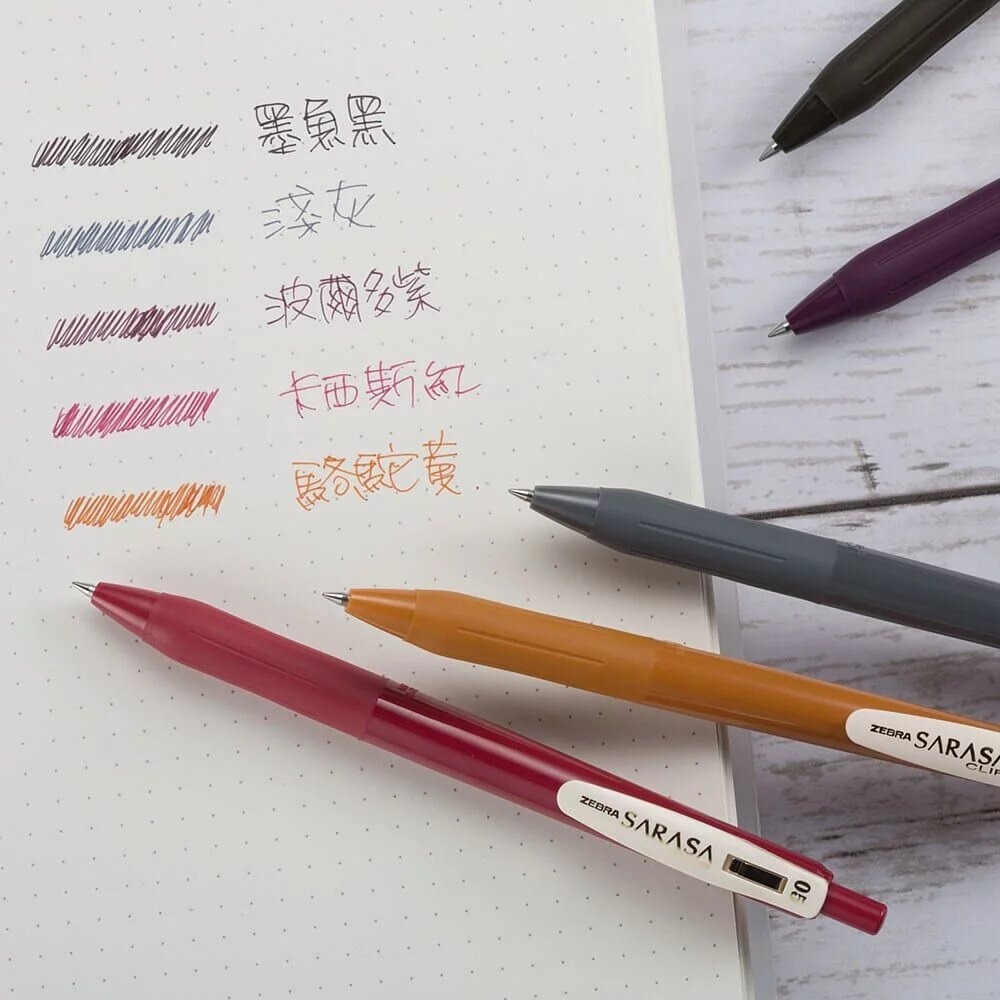 墨魚黑
淺灰
波爾多紫
卡西斯紅
駱駝黃
ZEBRA SARASA CLIP
ZEBRA SARASA 05